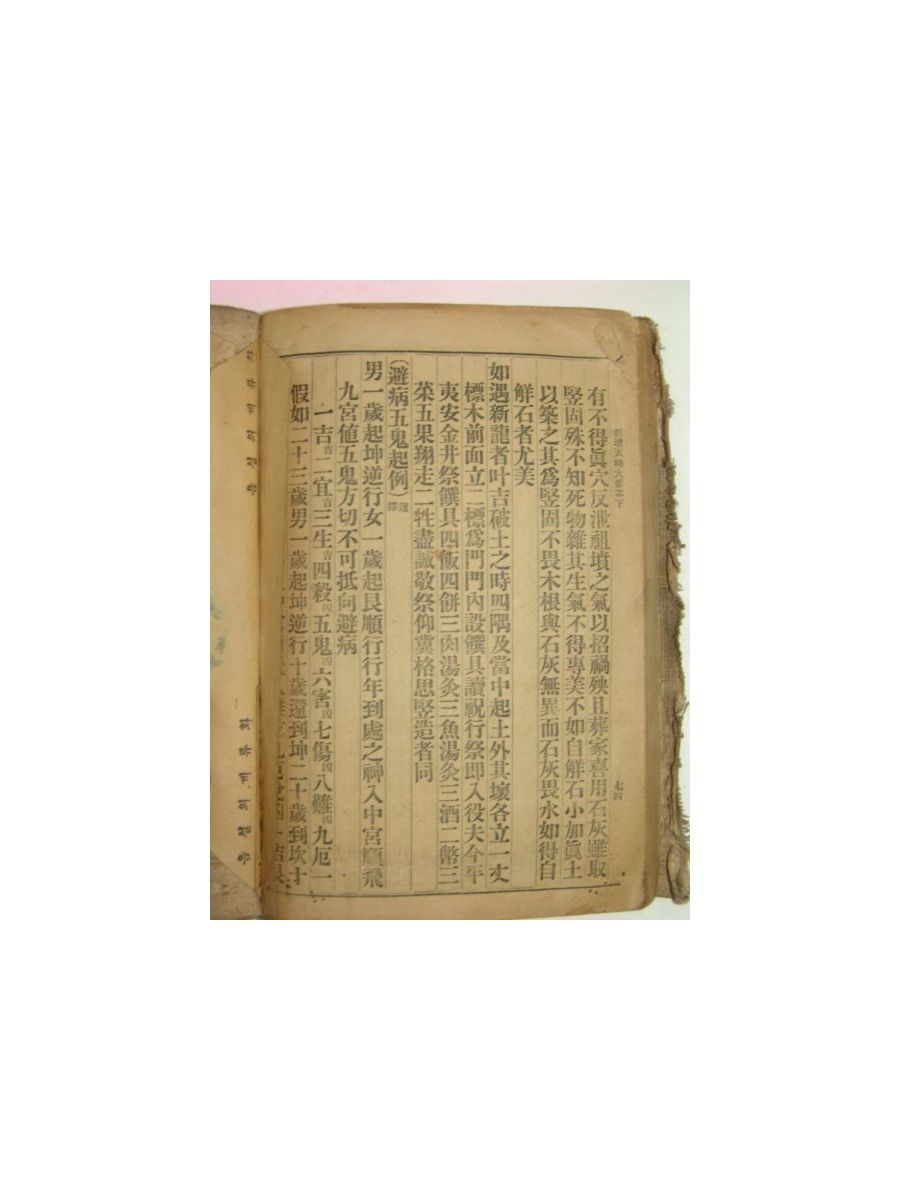 新增天機大要卷下
七四
有不得眞穴反泄祖墳之氣以招禍殃且葬家喜用石灰雖取
竪固殊不知死物雜其生氣不得專美不如自鮮石小加眞土
以築之其爲竪固不畏木根與石灰無異而石灰畏水如得自
鮮石者尤美
如遇新龍者叶吉破土之時四隅及當中起土外其壞各立一丈
標木前面立二標爲門門內設饌具讀祝行祭即入役夫今平
夷安金井祭饌具四飯四餠三肉湯灸三魚湯灸三酒二幣三
菜五果翔走二牲盡誠敬祭仰冀格思竪造者同
(避病五鬼起例)選擇
男一歲起坤逆行女一歲起艮順行行年到處之神入中宮順飛
九宮値五鬼方切不可抵向避病
一吉吉二宜吉三生吉四殺凶五鬼凶六害凶七傷凶八難凶九厄一
假如二十三歲男一歲起坤逆行十歲還到坤二十歲到坎十